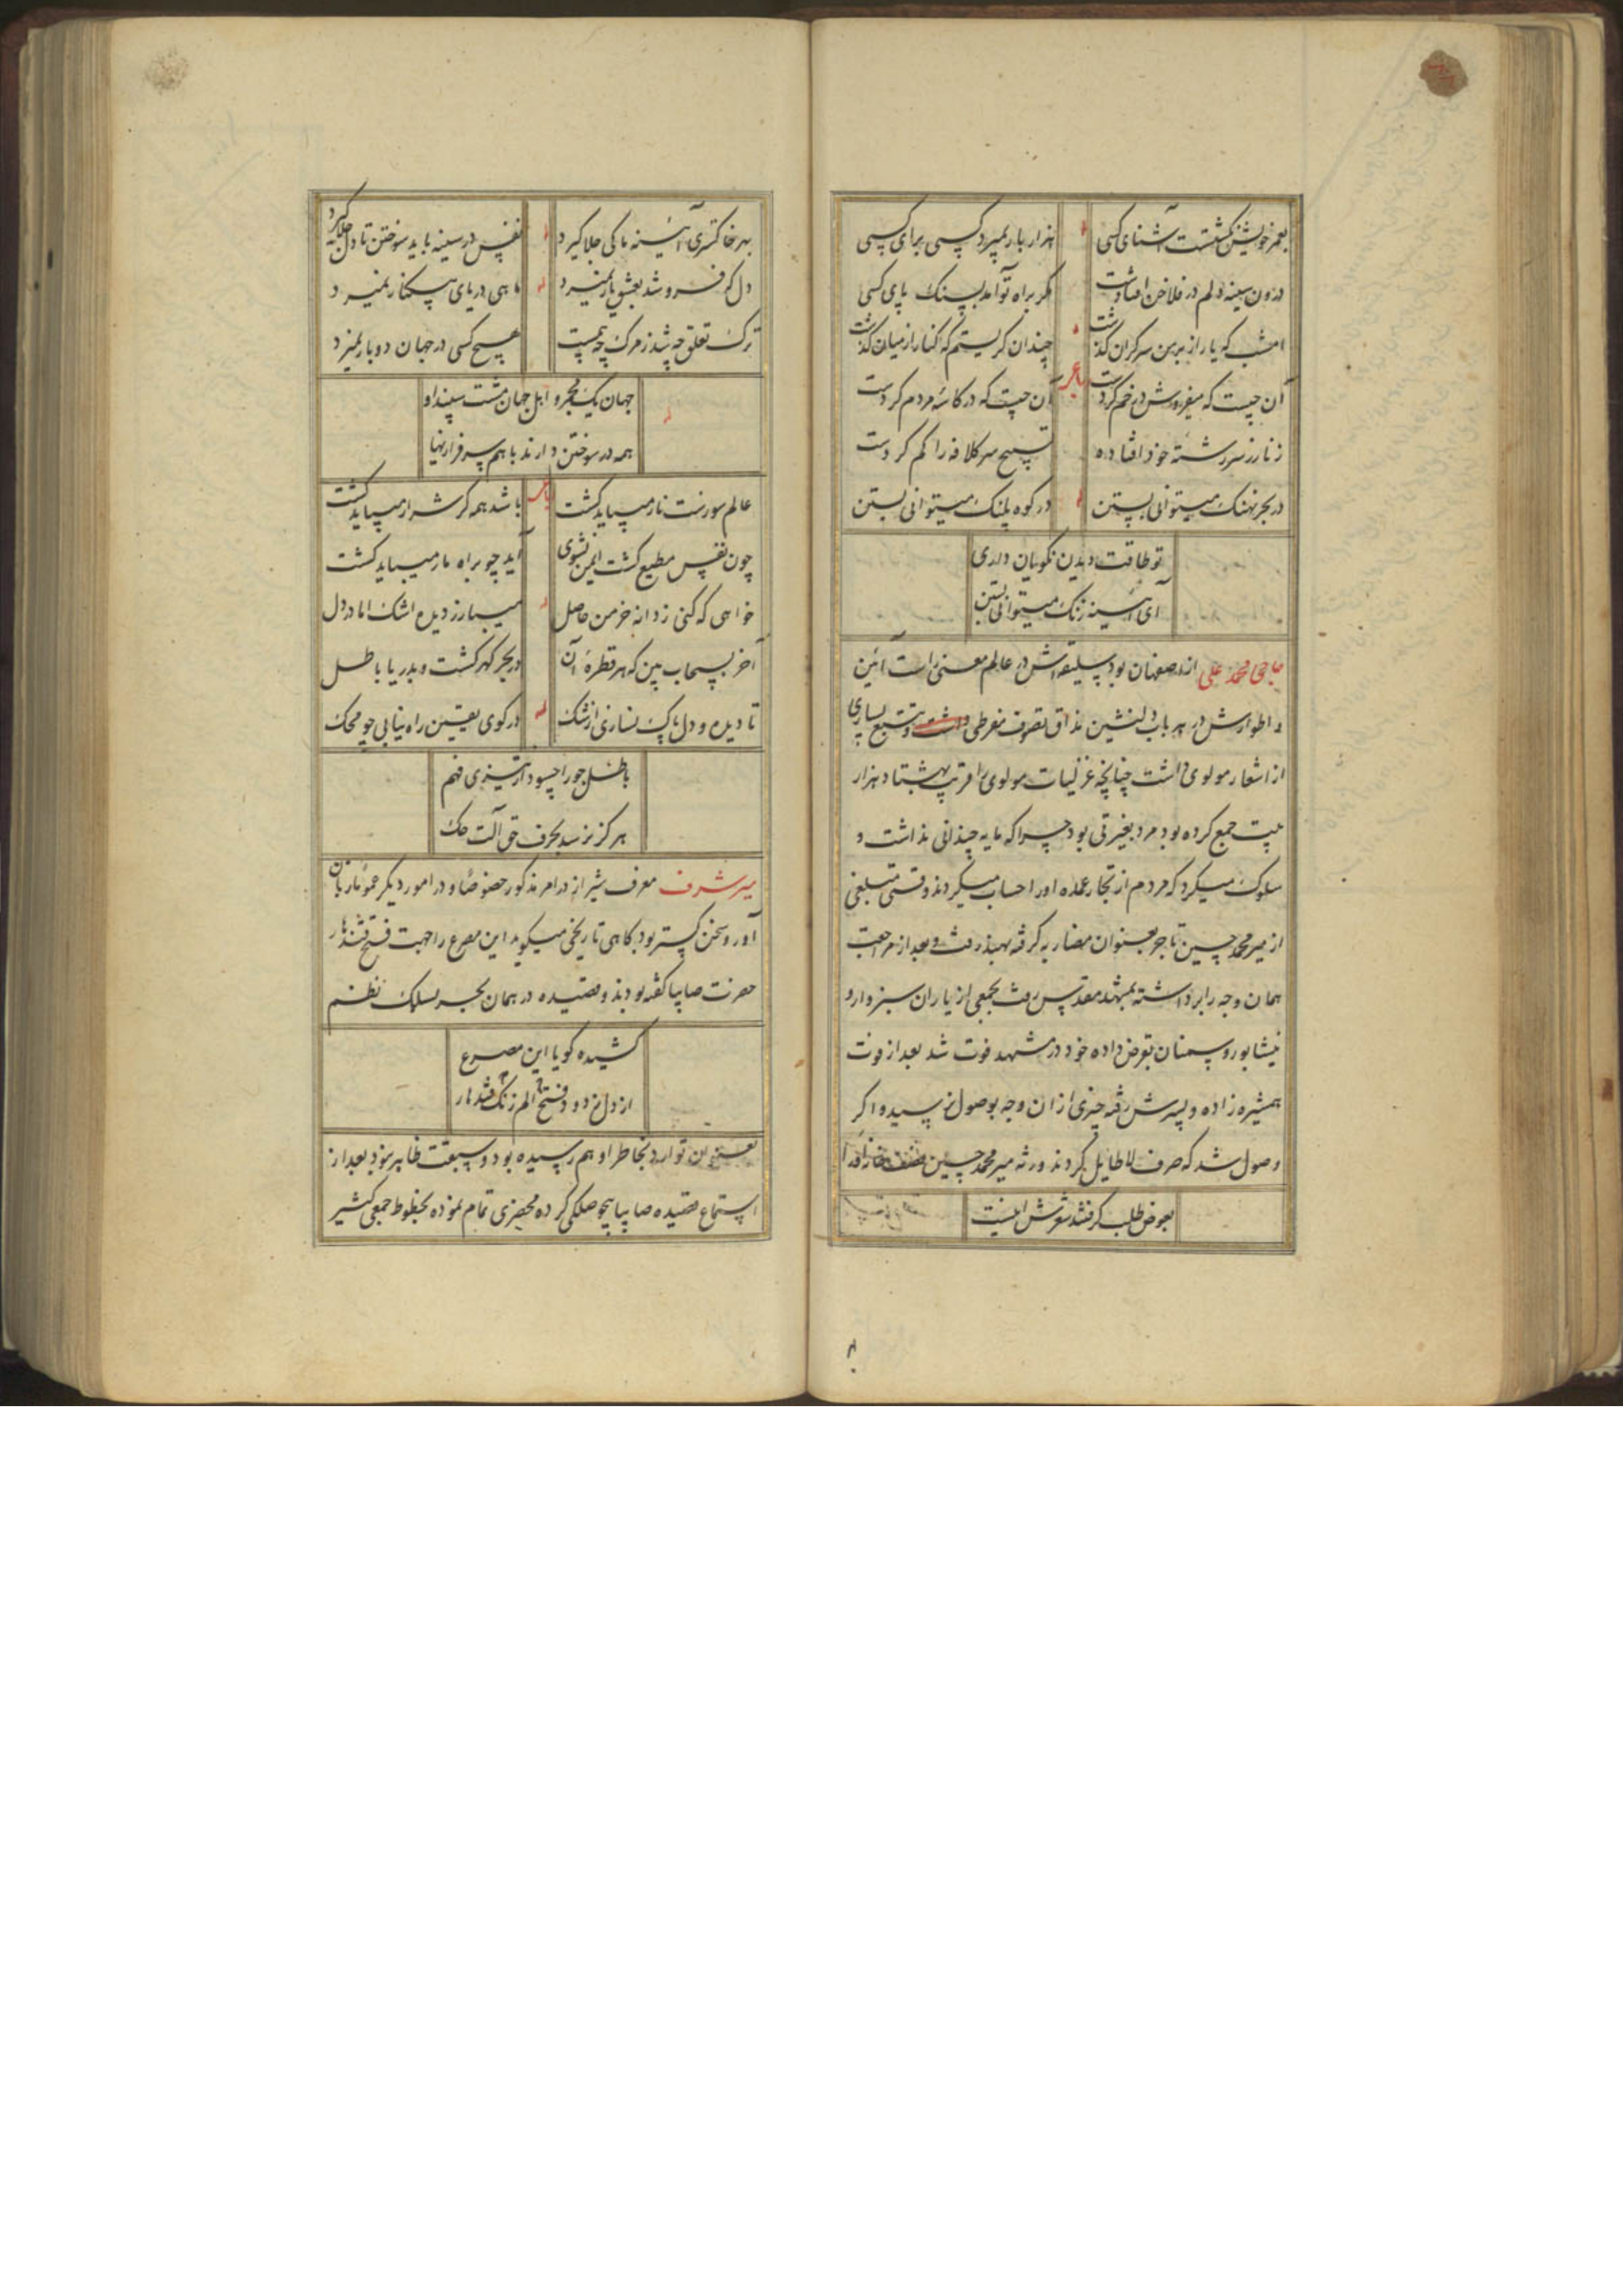 بعمر خویشتن گشتست آشنای کسی
هزار بار نمیرد کسی برای کسی
درون سینه دلم در فلاخن افتادست
مگر براه تو آمد بسنک پای کسی
امشب که یار از بر من سرکران کذشت
چندان کریستم که کنار از میان کذشت
آن چیست که میفروش در خم کردست
آن چیست که در کاسه مردم کردست
زنار ز سر رشته خود افتاده
تسبیح سر کلافه را کم کردست
در بحر نهنک میتوانی بستن
در کوه پلنک میتوانی بستن
تو طاقت دیدن نکویان داری
ای آینه زنک میتوانی بستن
حاجی محمد علی از اصفهان بود سلیقه اش در عالم معنی راست آئین
و اطوارش در هر باب دلنشین مذاق تصوف مفرطی داشت و تتبع بسیاری
از اشعار مولوی داشت چنانچه غزلیات مولوی را قریب بهشتاد هزار
بیت جمع کرده بود مرد بغیرتی بود چرا که مایه چندانی نداشت و
سلوک میکرد که مردم از تجار عمده او را حساب میکردند وقتی مبلغی
از میر محمد حسین تاجر بعنوان مضاربه کرفته بهند رفت و بعد از مراجعت
همان وجه را برداشته بمشهد مقدس رفت بجمعی از یاران سبزوار و
نیشابور و سمنان بقرض داده خود در مشهد فوت شد بعد از فوت
همشیره زاده و پسرش رفته چیزی از ان وجه بوصول نرسید و اکر
وصول شد که صرف لاطایل کردند ورثه میر محمد حسین
بعوض طلب کرفتند شعرش اینست
بهر خاکستری آئینه ما کی جلا کیرد
نفس در سینه باید سوختن تا دل جلا کیرد
دل که فرو شد بعشق یار نمیرد
ماهی دریای بیکنار نمیرد
ترک تعلق چه شد ز مرک چه بیمست
هیچ کسی در جهان دوبار نمیرد
جهان یک مجمر و اهل جهان مشت سپند او
همه در سوختن دارند با هم سرفرازیها
عالم سورست نار میباید کشت
باشد همه کر شرار میباید کشت
چون نفس مطیع کشت ایمن نشوی
آید چو براه مار میباید کشت
خواهی که کنی ز دانه خرمن حاصل
میبار ز دیده اشک اما در دل
آخر بسحاب بین که هر قطره آن
در بحر کهر کشت و بدریا باطل
تا دیده و دل پاک نسازی از شک
در کوی یقین راه نیابی چو محک
باطل جو را چسود از تیزی فهم
هرکز نرسد بحرف حق آلت حک
میر شرف معرف شیراز در امر مذکور خصوصا و در امور دیکر عموما زبان
آور و سخن کستر بود کاهی تاریخی میکوید این مصرع را جهت فتح قندهار
حضرت صایبا کفته بودند و قصیده در همان بحر بسلک نظم
کشیده کویا این مصرع
از دل زدود فتح الم زنک قندهار
بعنوان توارد بخاطر او هم رسیده بود و سبقت ظاهر نمود بعد از
استماع قصیده صایبا هجو کرده محضری تمام نموده بخطوط جمعی کثیر